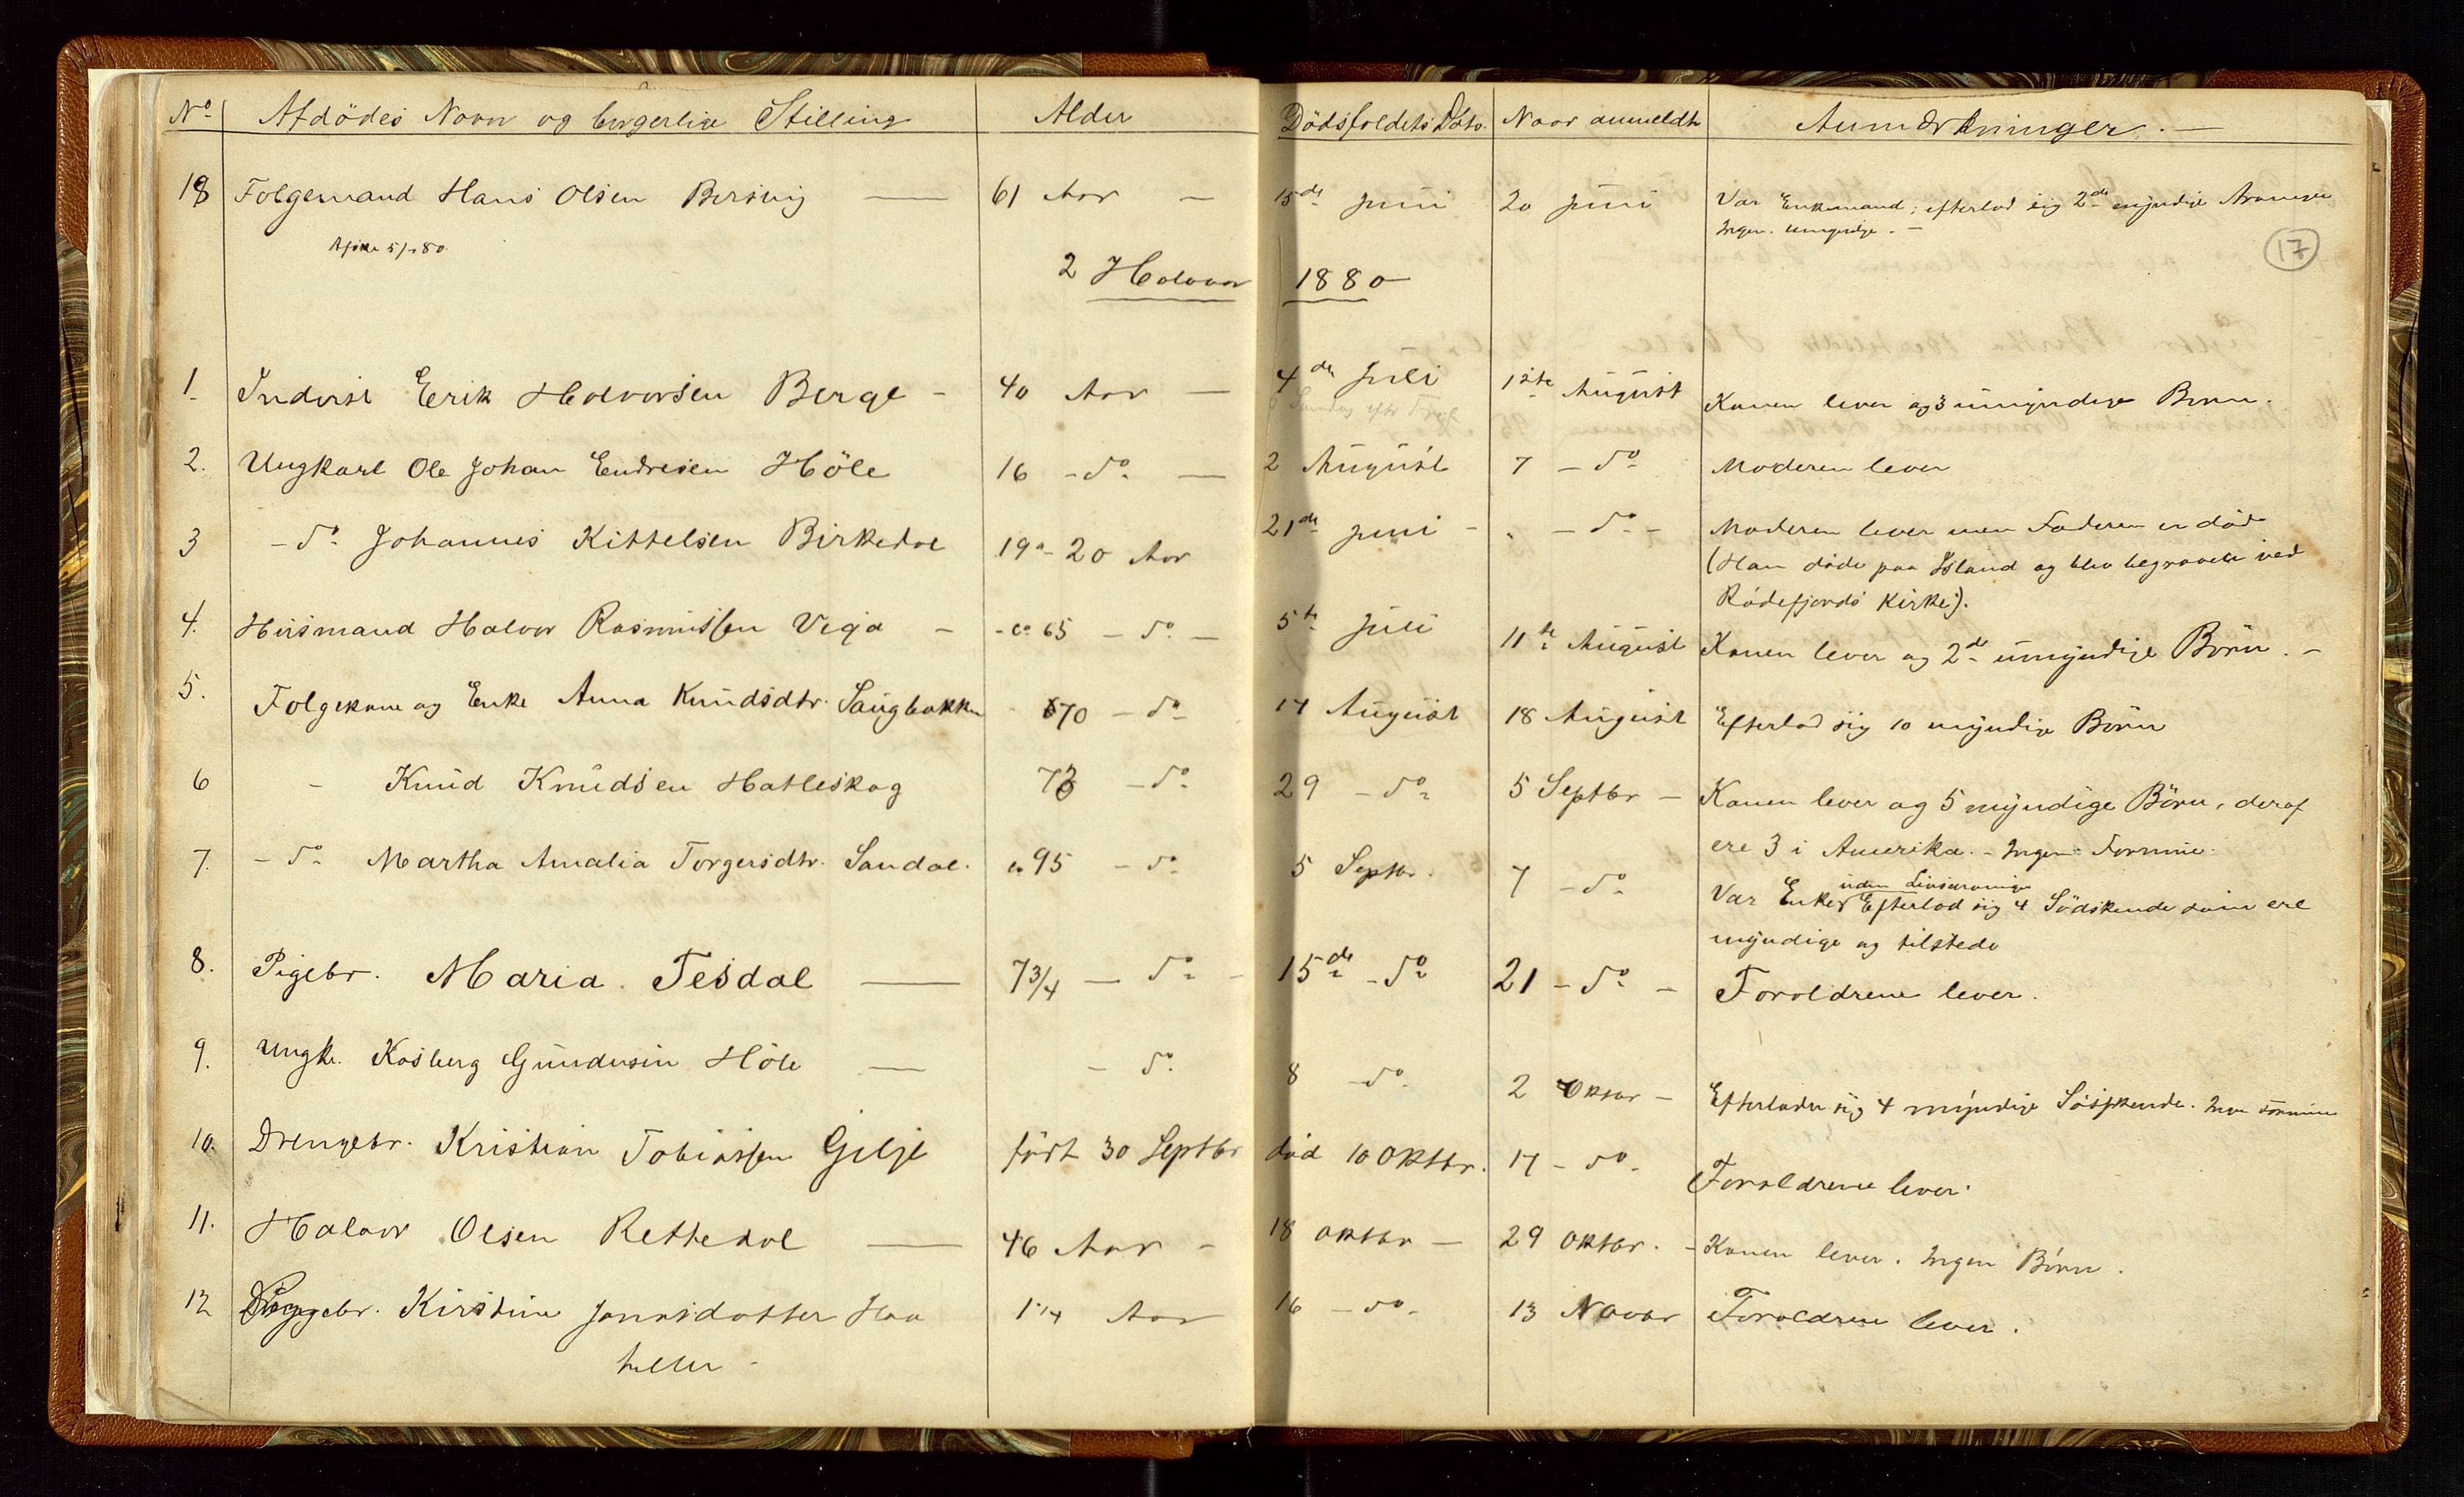 No. Afdödes Navn og borgerlige Stilling Alder Dödsfaldets Dato. Naar anmeldt Anmærkninger. —
18 Folgemand Hans Olsen Bersvig — 61 Aar — 15de Juni 20 Juni Var Enkemand; efterlod sig 2de myndige Arvinger
Ingen umyndige. —
5/7 80.
17
2 Halvaar 1880
1. Inderst Erik Halvorsen Berge – 40 Aar — 4de Juli 1ste August Konen lever og 3 umyndige Börn.
2. Ungkarl Ole Johan Endresen Höle 16 – do – 2 August 7 – do Moderen lever
3 – do Johannes Kittelsen Birkedal 19 a 20 Aar 21de Juni – " – do – Moderen lever men Faderen er död
(Han döde paa Island og blev begravet ved
Rödefjords Kirke).
4. Husmand Halvor Rasmussen Viga – ca 65 – do – 5te Juli 11te August Konen lever og 2de umyndige Börn. –
5. Folgekone og Enke Anna Knudsdtr. Saugbakken 70 – do 14 August 18 August Efterlod sig 10 myndige Börn
6 – Knud Knudsen Hatleskog 73 – do 29 – do 5 Septbr – Konen lever og 5 myndige Börn, deraf
ere 3 i Amerika. – Ingen Formue.
7. – do Martha Amalia Torgersdtr. Sandal. ca 95 – do 5 Septbr. 7 – do
uden Livsarvinger
Var Enke Efterlod sig 4 Södskende som ere
myndige og tilstede
8. Pigebr. Maria Tesdal — 7 3/4 — do – 15de – do 21 – do – Foroldrene lever.
9. Ungk. Kosberg Gundersen Höle — – do. 8 – do. 2 Oktbr – Efterlader sig 4 myndige Söskende. Ingen Formue
10. Drengebr. Kristian Tobiassen Gilje fört 30 Septbr död 10 Oktbr. 17 – do – Foroldrene lever.
11. Halvor Olsen Rettedal — 46 Aar – 18 Oktbr — 29 Oktbr. – Konen lever. Ingen Börn.
12 Pigebr. Kirstine Jonasdatter Haa 1 1/4 Aar 16 – do – 13 Novbr Foroldrene lever.
heller –